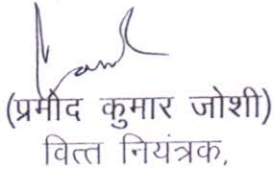 (प्रमोद कुमार जोशी)
वित्त नियंत्रक,